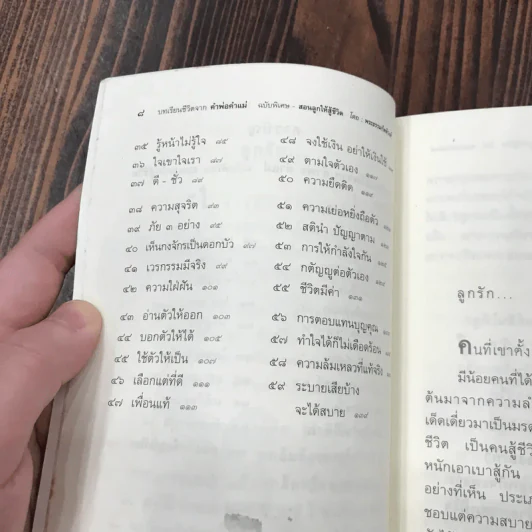 ๘ บทเรียนชีวิตจาก คำพ่อคำแม่ ฉบับพิเศษ - สอนลูกให้สู้ชีวิต โดย :
๓๕ รู้หน้าไม่รู้ใจ ๘๕
๓๖ ใจเขาใจเรา ๘๗
๓๗ ดี - ชั่ว
๓๘ ความสุจริต
๓๙ ภัย ๓ อย่าง ๙๕
๔๐ เห็นกงจักรเป็นดอกบัว ๙๗
๔๑ เวรกรรมมีจริง ๙๙
๔๒ ความใฝ่ฝัน ๑๐๑
๔๓ อ่านตัวให้ออก ๑๐๓
๔๔ บอกตัวให้ได้ ๑๐๕
๔๕ ใช้ตัวให้เป็น ๑๐๗
๔๖ เลือกแต่ที่ดี ๑๑๑
๔๗ เพื่อนแท้ ๑๑๓
๔๘ จงใช้เงิน อย่าให้เงินใช้
๔๙ ตามใจตัวเอง
๕๐ ความยึดติด ๑๑๙
๕๑ ความเย่อหยิ่งถือตัว
๕๒ สตินำ ปัญญาตาม
๕๓ การให้กำลังใจกัน
๕๔ กตัญญูต่อตัวเอง
๕๕ ชีวิตมีค่า ๑๓๑
๕๖ การตอบแทนบุญคุณ
๕๗ ทำใจได้ก็ไม่เดือดร้อน
๕๘ ความล้มเหลวที่แท้จริง
๕๙ ระบายเสียบ้าง
จะได้สบาย ๑๓๙
ลูกรัก...
คนที่เขาตั้ง
มีน้อยคนที่ได้
ต้นมาจากความลำ
เด็ดเดี่ยวมาเป็นมรด
ชีวิต เป็นคนสู้ชี
หนักเอาเบาสู้กัน
อย่างที่เห็น ประเภ
ชอบแต่ความสบาย